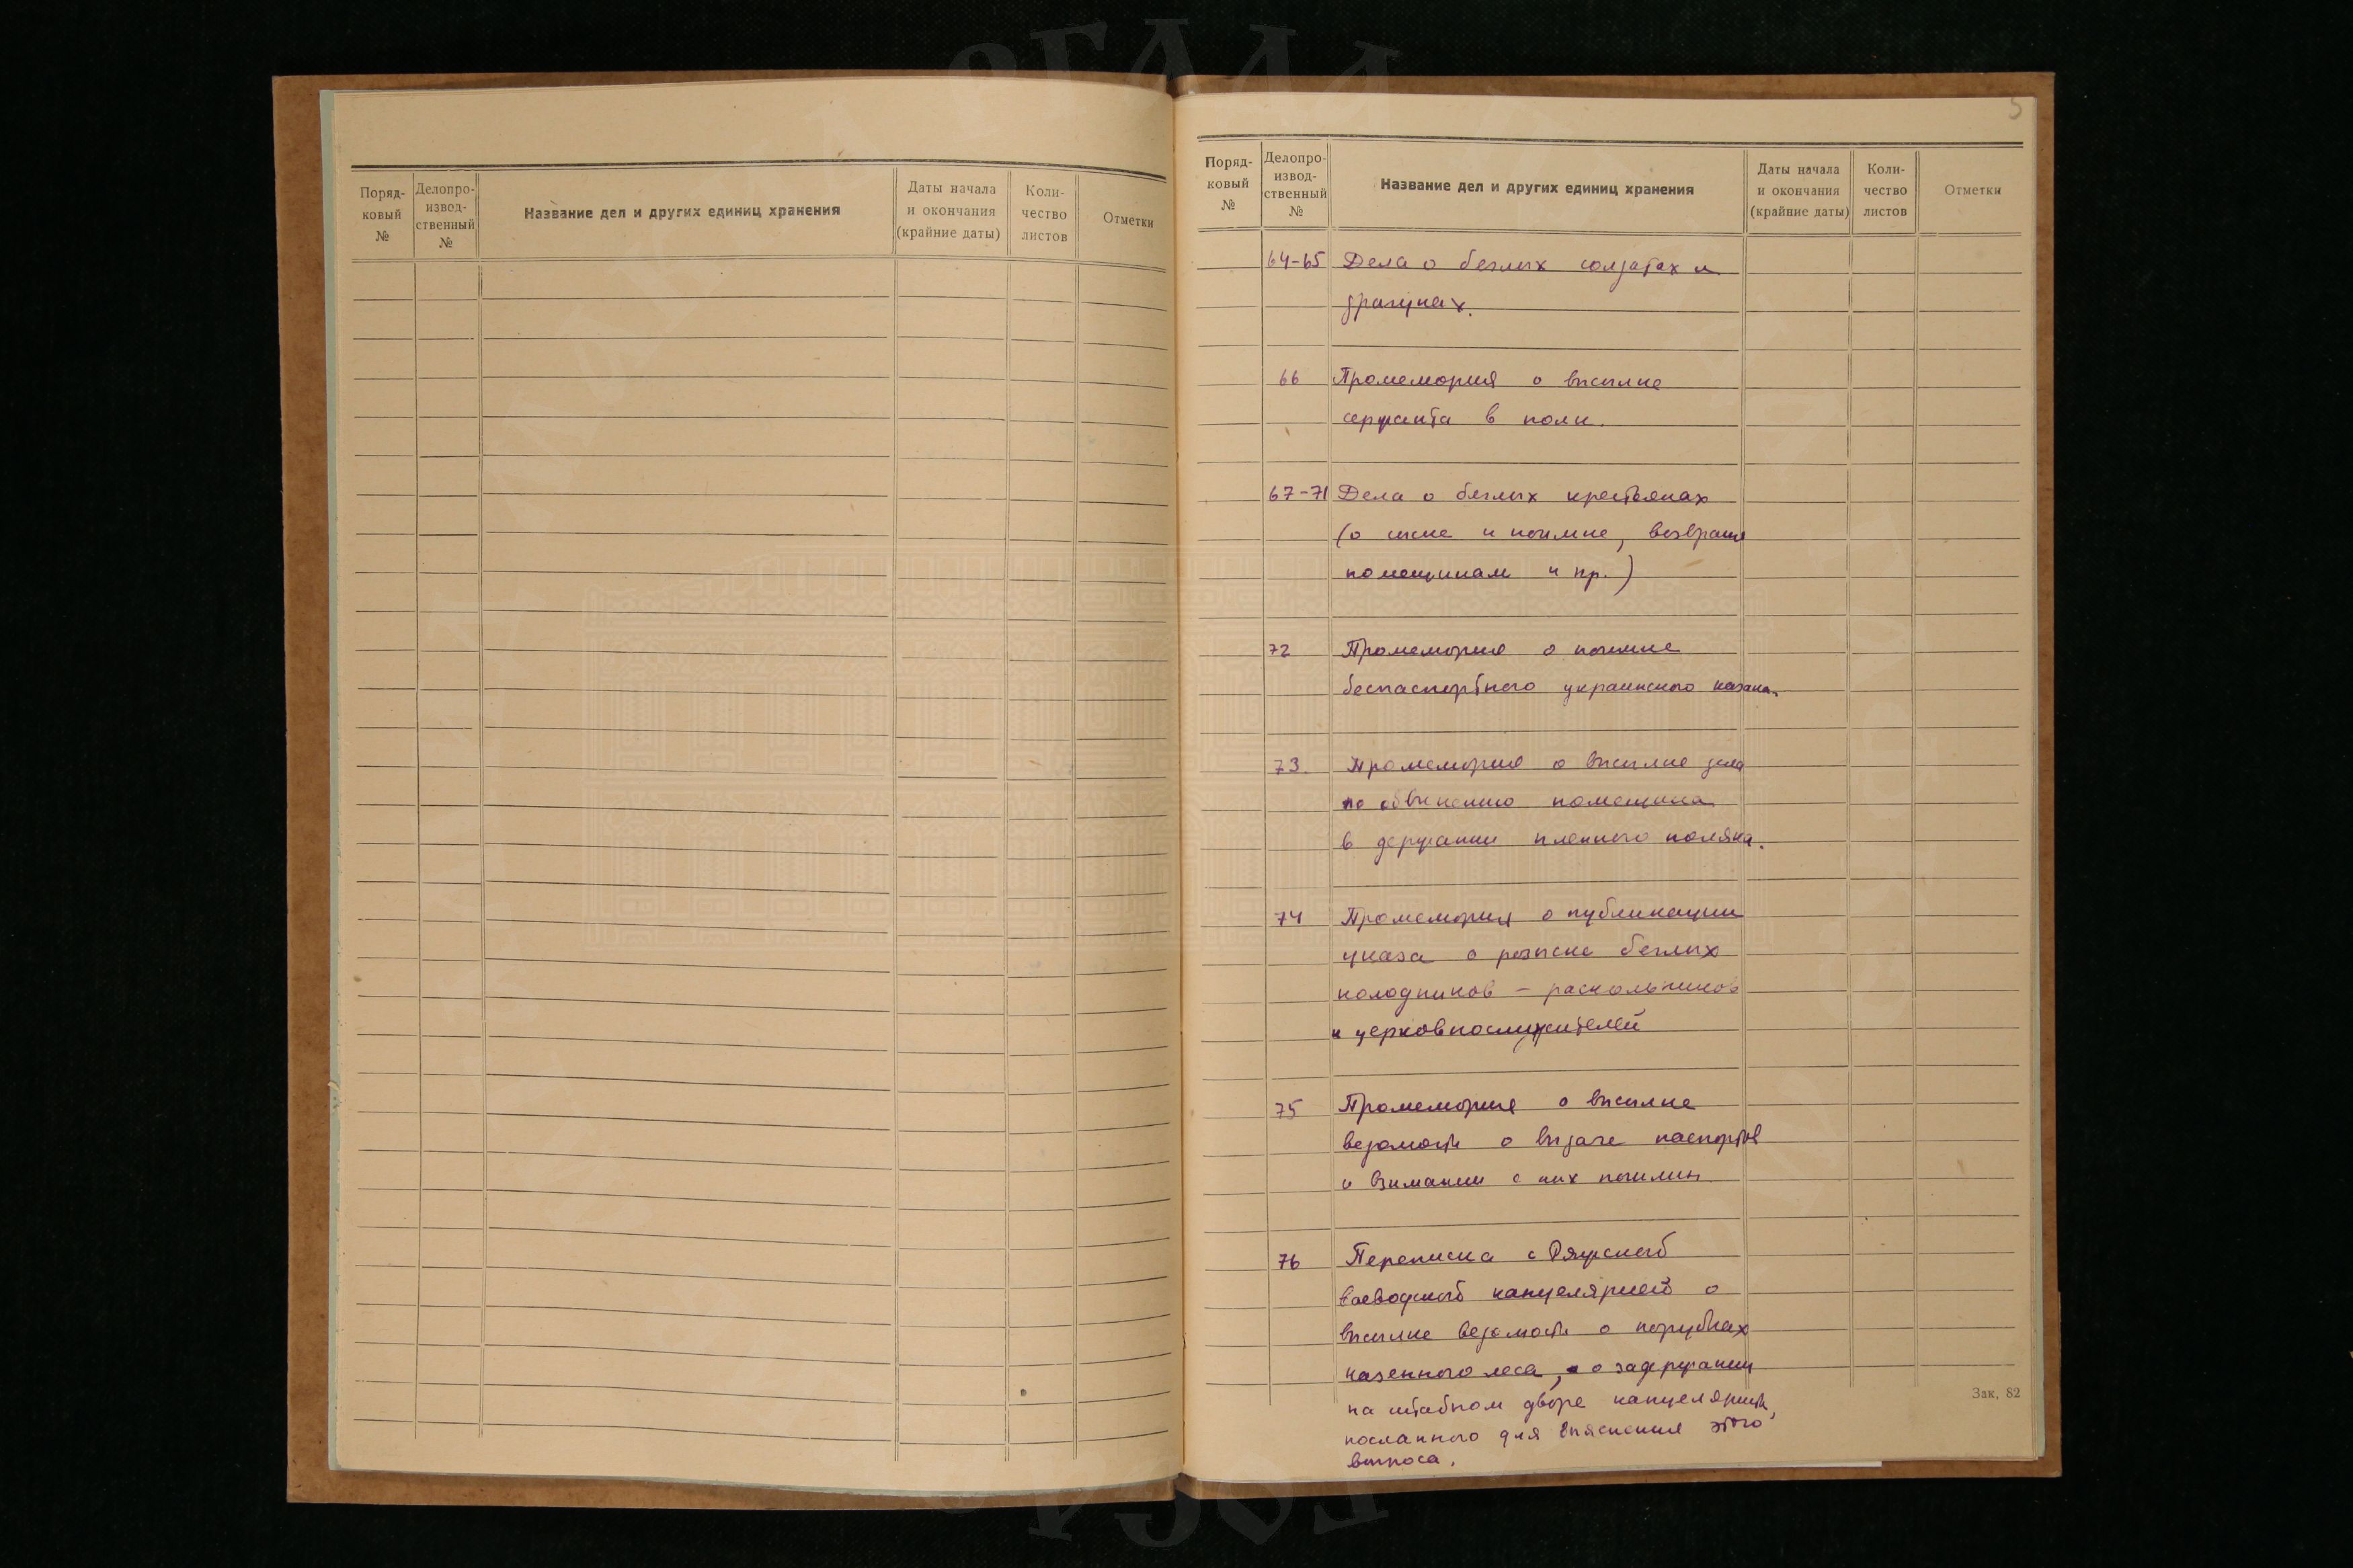 Поряд-
ковый
№
Делопро-
извод-
ственный
№
Название дел и других единиц хранения
Даты начала
и окончания
(крайние даты)
Коли-
чество
листов
Отметки
5
Поряд-
ковый
№
Делопро-
извод-
ственный
№
Название дел и других единиц хранения
Даты начала
и окончания
(крайние даты)
Коли-
чество
листов
Отметки
64-65 Дела о беглых солдатах и
драгунах.
66 Промемория о высылке
сержанта в полк.
67-71 Дела о беглых крестьянах
(о сыске и поимке, возврате
помещикам и пр.)
72 Промемория о поимке
беспаспортного украинского казака.
73. Промемория о высылке дела
по обвинению помещика
в держании пленного поляка.
74 Промемория о публикации
указа о розыске беглых
колодников – раскольников
и церковнослужителей
75 Промемория о высылке
ведомости о выдаче паспортов
и взимании с них пошлин
76 Переписка с Ряжской
воеводской канцелярией о
высылке ведомости о порубках
казенного леса, о задержании
на штабном дворе канцеляриста,
посланного для выяснения этого
вопроса.
Зак. 82